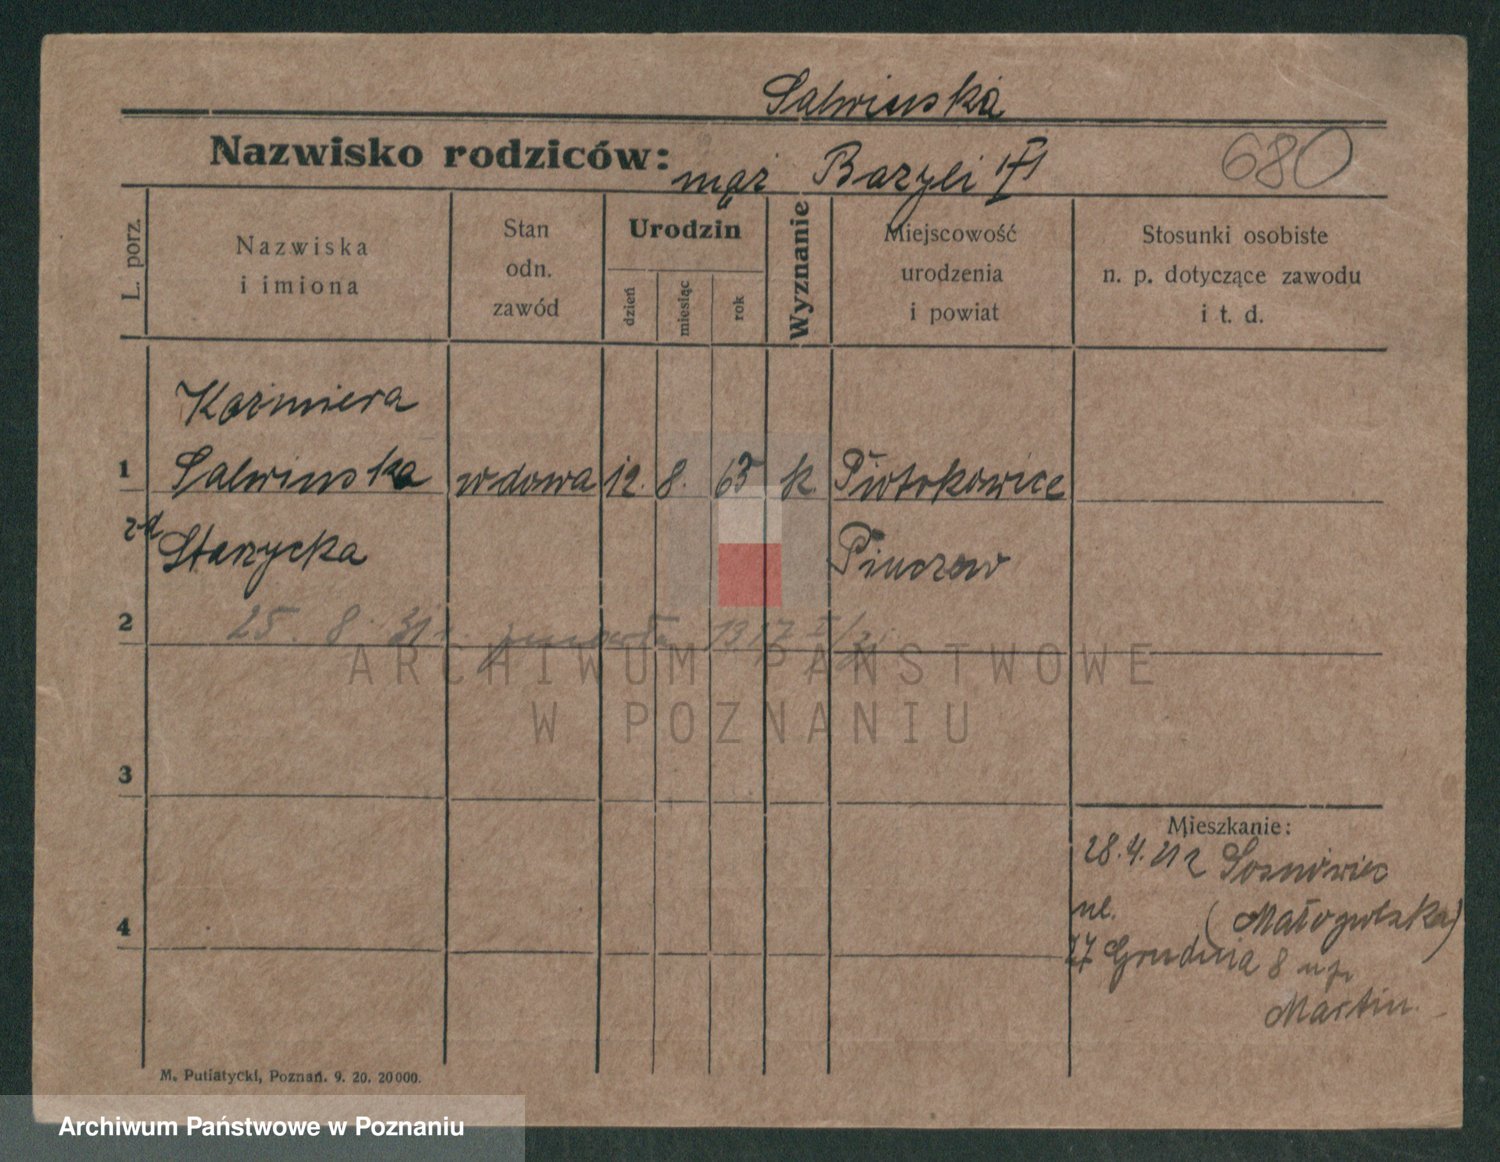 Salwinska
Nazwisko rodziców: mąż Bazyli
680
L. porz.
Nazwiska
i imiona
Stan
odn.
zawód
Urodzin
dzień
miesiąc
rok
Wyznanie
Miejscowość
urodzenia
i powiat
Stosunki osobiste
n. p. dotyczące zawodu
i t. d.
Kazimiera
1 Salwinska wdowa 12. 8. 65 k. Piotrkowice
z d Starzycka Pinczow
2 25. 8. 31
ARCHIWUM PAŃSTWOWE
W POZNANIU
3
Mieszkanie:
28.4.21 z Sosnowiec
ul. (Małogoszka)
4
27 Grudnia 8 u p.
Martin
M. Putiatycki, Poznań. 9. 20. 20000.
Archiwum Państwowe w Poznaniu